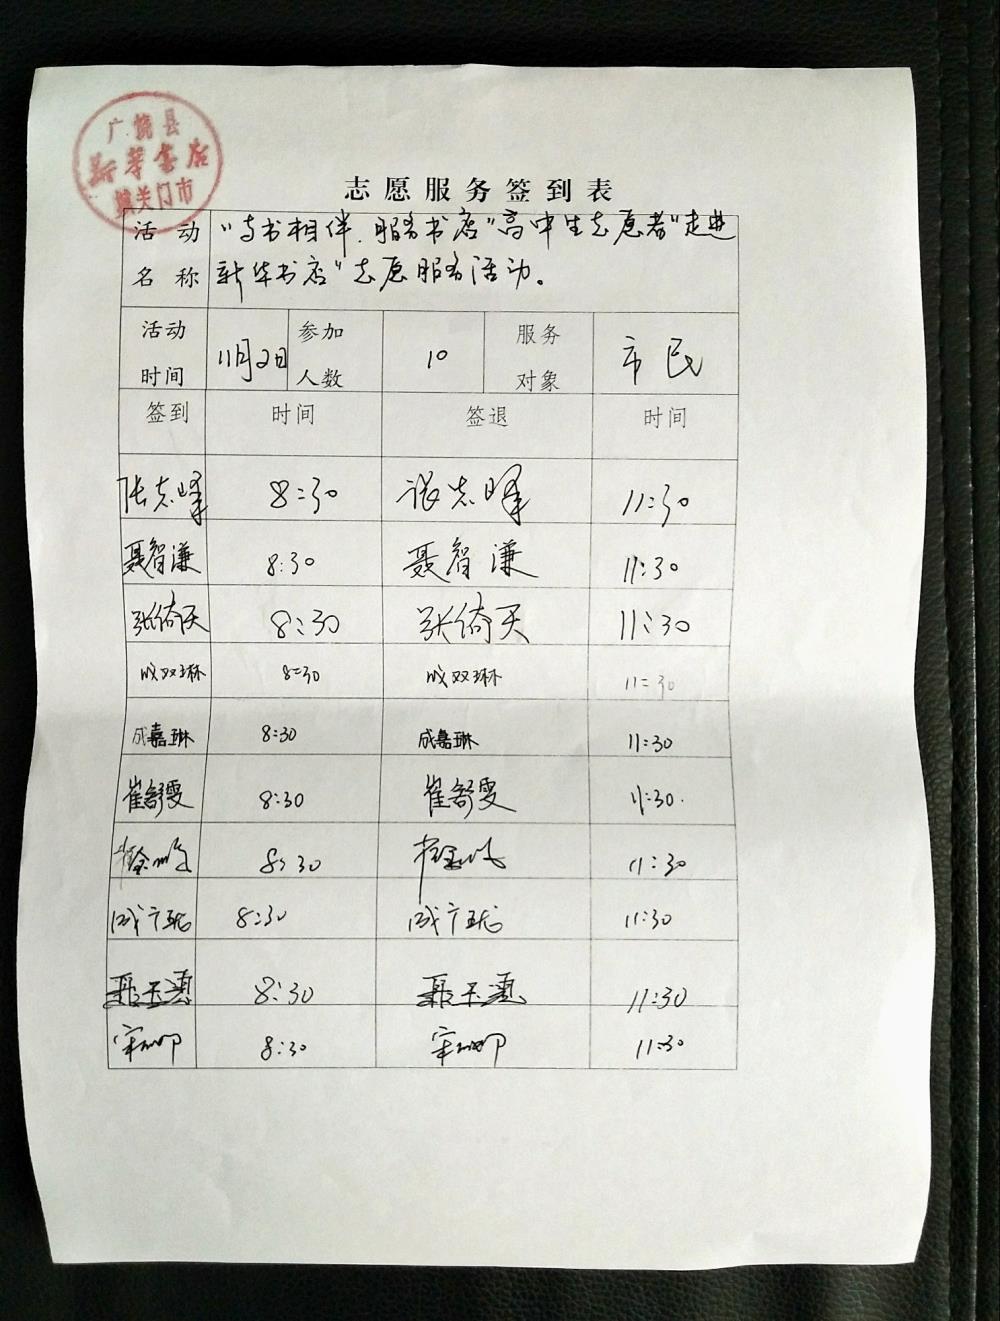 广饶县
新华书店
城关门市
志愿服务签到表
活动 "与书相伴.服务书店"高中生志愿者"走进
名称 新华书店"志愿服务活动。
活动 参加 服务
时间 11月2日 人数 10 对象 市民
签到 时间 签退 时间
张志峰 8:30 张志峰 11:30
聂智谦 8:30 聂智谦 11:30
张倚天 8:30 张倚天 11:30
成双琳 8:30 成双琳 11:30
成嘉琳 8:30 成嘉琳 11:30
崔舒雯 8:30 崔舒雯 11:30.
8:30 11:30
8:30 11:30
8:30 11:30
8:30 11:30